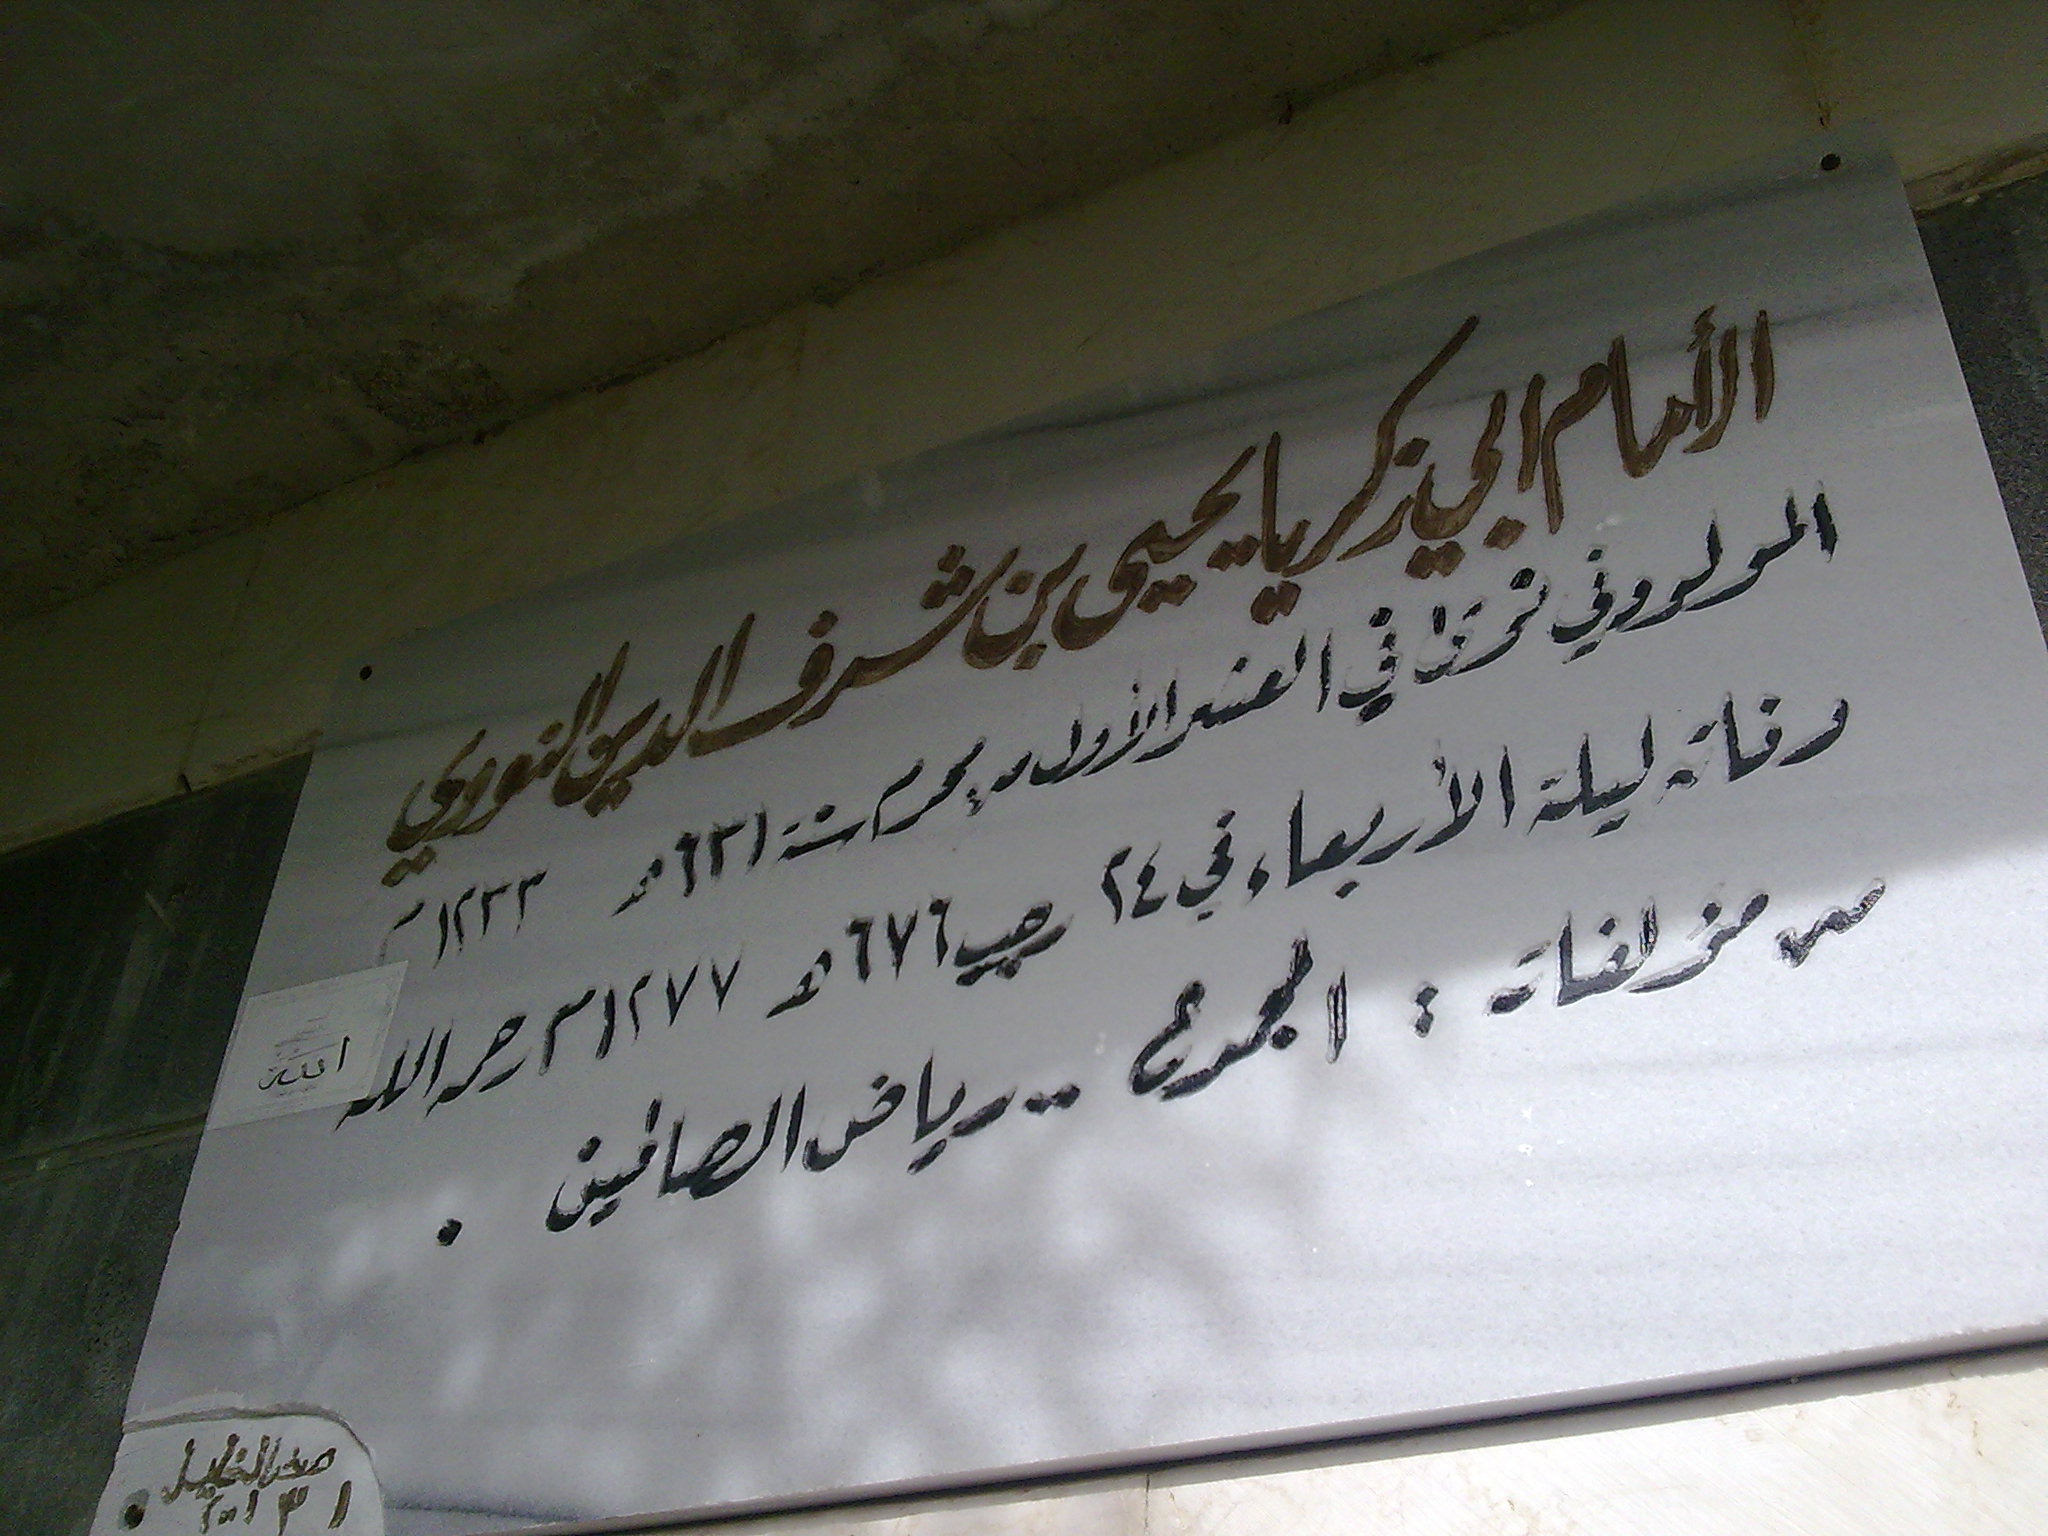 الأمام ابي زكريا يحيى بن شرف الدين النووي
المولود في نوى في العشر الأول من محرم سنة ٦٣١ هـ ١٢٣٣ م
وفاته ليلة الأربعاء في ٢٤ رجب ٦٧٦ هـ ١٢٧٧ م رحمه الله
من مؤلفاته : المجموع .. رياض الصالحين .
الله